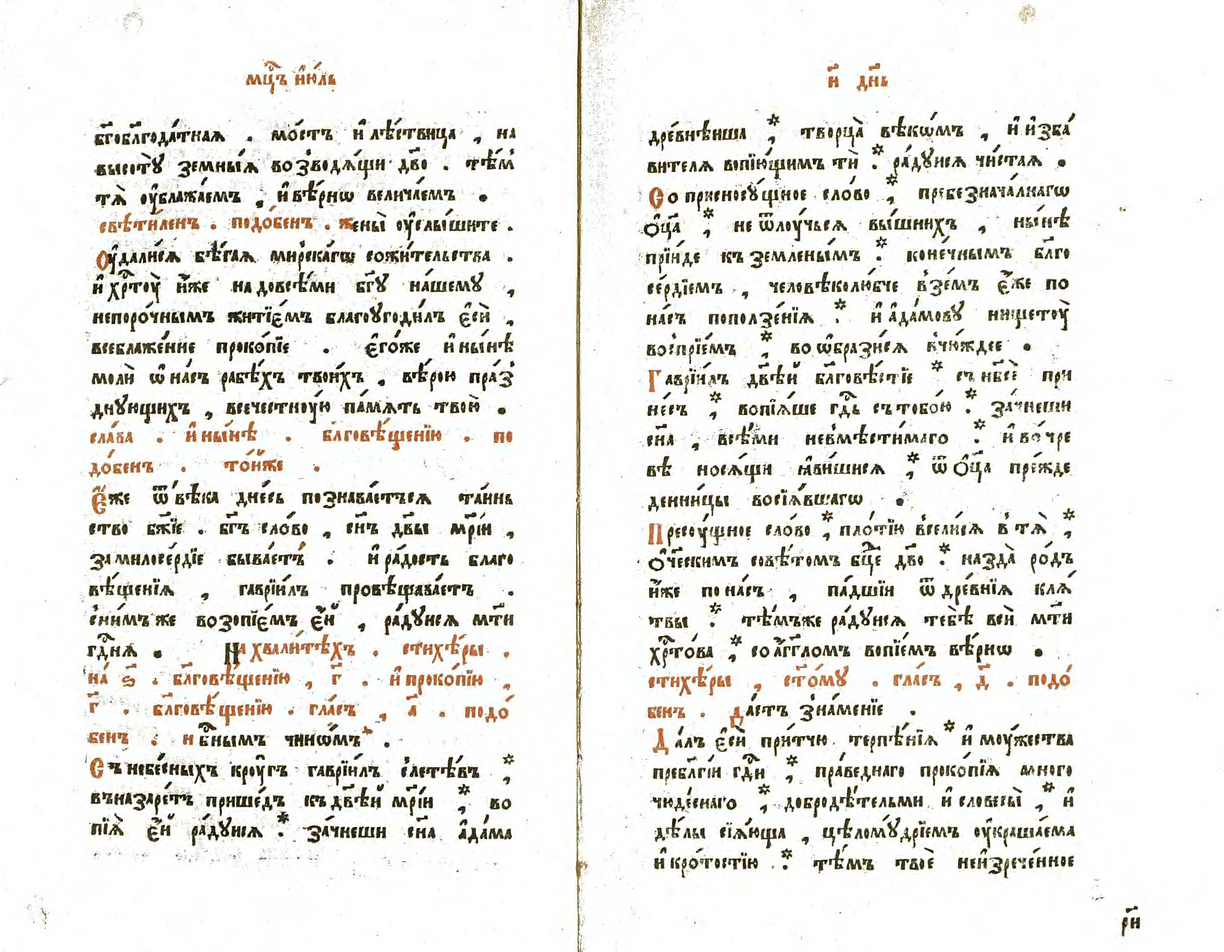 мц҃ъ і҆ю́ль
бг҃облг҃ода́тная . мо́стъ и҆ лѣ́ствица , на
высотꙋ̀ земны́ѧ возводѧ́щи дв҃о . тѣ́м
тѧ̀ оу҆блажа́емъ , и҆ вѣ́рнѡ велича́емъ .
свѣти́ленъ . подо́бенъ . жены̀ оу҆слы́шите .
Оу҆дали́сѧ бѣ́гаѧ мирска́гѡ сожи́тельства .
и҆ хрт҃оу̀ и҆́же надовсѣ́ми бг҃ꙋ на́шемꙋ ,
непоро́чнымъ житїе́мъ благоꙋгоди́лъ є҆сѝ ,
всеблаже́нне проко́пїе . є҆го́же и҆ ны́нѣ
молѝ ѡ҆ на́съ рабѣ́хъ твои́хъ . вѣ́рою пра́з
днꙋющихъ , всечестнꙋ́ю па́мѧть твою̀ .
сла́ва . и҆ ны́нѣ . блг҃овѣ́щенїю . по
до́бенъ . то́йже .
Є҆́же ѿ вѣ́ка дне́сь познава́етъсѧ та́инь
ство бж҃їе . бг҃ъ сло́во , сн҃ъ дв҃ы мр҃і́и ,
за милосе́рдїе быва́етъ . и҆ ра́дость благо
вѣ́щенїѧ , гаврїи́лъ провѣщава́етъ .
сни́мъже возопїе́мъ є҆́й , ра́дꙋисѧ мт҃и
гд҃нѧ . На хвали́тѣхъ . стихѣ́ры .
на ѕ҃ . блг҃овѣ́щенїю , г҃ . и҆ проко́пїю ,
г҃ . блг҃овѣ́щенїю . гла́съ , а҃ . подо́
бенъ . нб҃нымъ чинѡ́мъ .
Съ небе́сныхъ крꙋ́гъ гаврїи́лъ слетѣ́въ *,
въ назаре́тъ прише́дъ къ дв҃ѣ́й мр҃і́и *, во
пїѧ̀ є҆́й ра́дꙋисѧ *. зачне́ши сн҃а а҆да́ма
и҃ дн҃ь
дре́внѣиша *, творца̀ вѣкѡ́мъ , и҆ и҆зба́
вителѧ вопїю́щимъ ти *. ра́дꙋисѧ чи́стаѧ .
Со присносꙋ́щное сло́во *, пребезнача́лнагѡ
Ѻц҃а *, не ѿлꙋ́чьсѧ вы́шнихъ , ны́нѣ
прїи́де къ земле́нымъ *. коне́чнымъ блг҃о
се́рдїемъ , человѣколю́бче взе́мъ є҆́же по
на́съ поползе́нїѧ *. и҆ а҆да́мовꙋ нищетꙋ̀
воспрїе́мъ *, во ѡ҆бразисѧ в чюждее .
Гаврїи́лъ дв҃ѣ́й блг҃овѣ́стїе * съ нб҃сѐ при
не́съ *, вопїѧ́ше гд҃ь съ тобо́ю *. зачне́ши
сн҃а , всѣ́ми невмѣсти́маго *. и҆ во́ чре
вѣ носѧ́щи ꙗ҆ви́шисѧ *, ѿ Ѻц҃а пре́жде
денни́цы восїѧ́вшагѡ .
Пресꙋ́щное сло́во *, пло́тїю всели́сѧ в тѧ̀ *,
Ѻ҆ч҃ескимъ совѣ́томъ бц҃е дв҃о *. назда̀ ро́дъ
и҆́же по на́съ , па́дшїи ѿ дре́внїѧ клѧ́
твы *. тѣ́мъже ра́дꙋисѧ тебѣ̀ всѝ мт҃и
хрт҃о́ва *, со а҆́гг҃ломъ вопїе́мъ вѣ́рнѡ .
стихѣ́ры , ст҃о́мꙋ . гла́съ , д҃ . подо́
бенъ . да́стъ зна́менїе .
Да́лъ є҆сѝ при́тчю терпѣ́нїѧ * и҆ мꙋ́жества
пребл҃гі́и гд҃и *, пра́веднаго проко́пїѧ много
чюде́снаго *, добродѣ́тельми и҆ словесы̀ *, и҆
дѣ́лы сїѧ́юща , цѣломꙋ́дрїемъ оу҆краша́ема
и҆ кро́тостїю *. тѣ́мъ твоѐ неи҆зрече́нное
рн҃